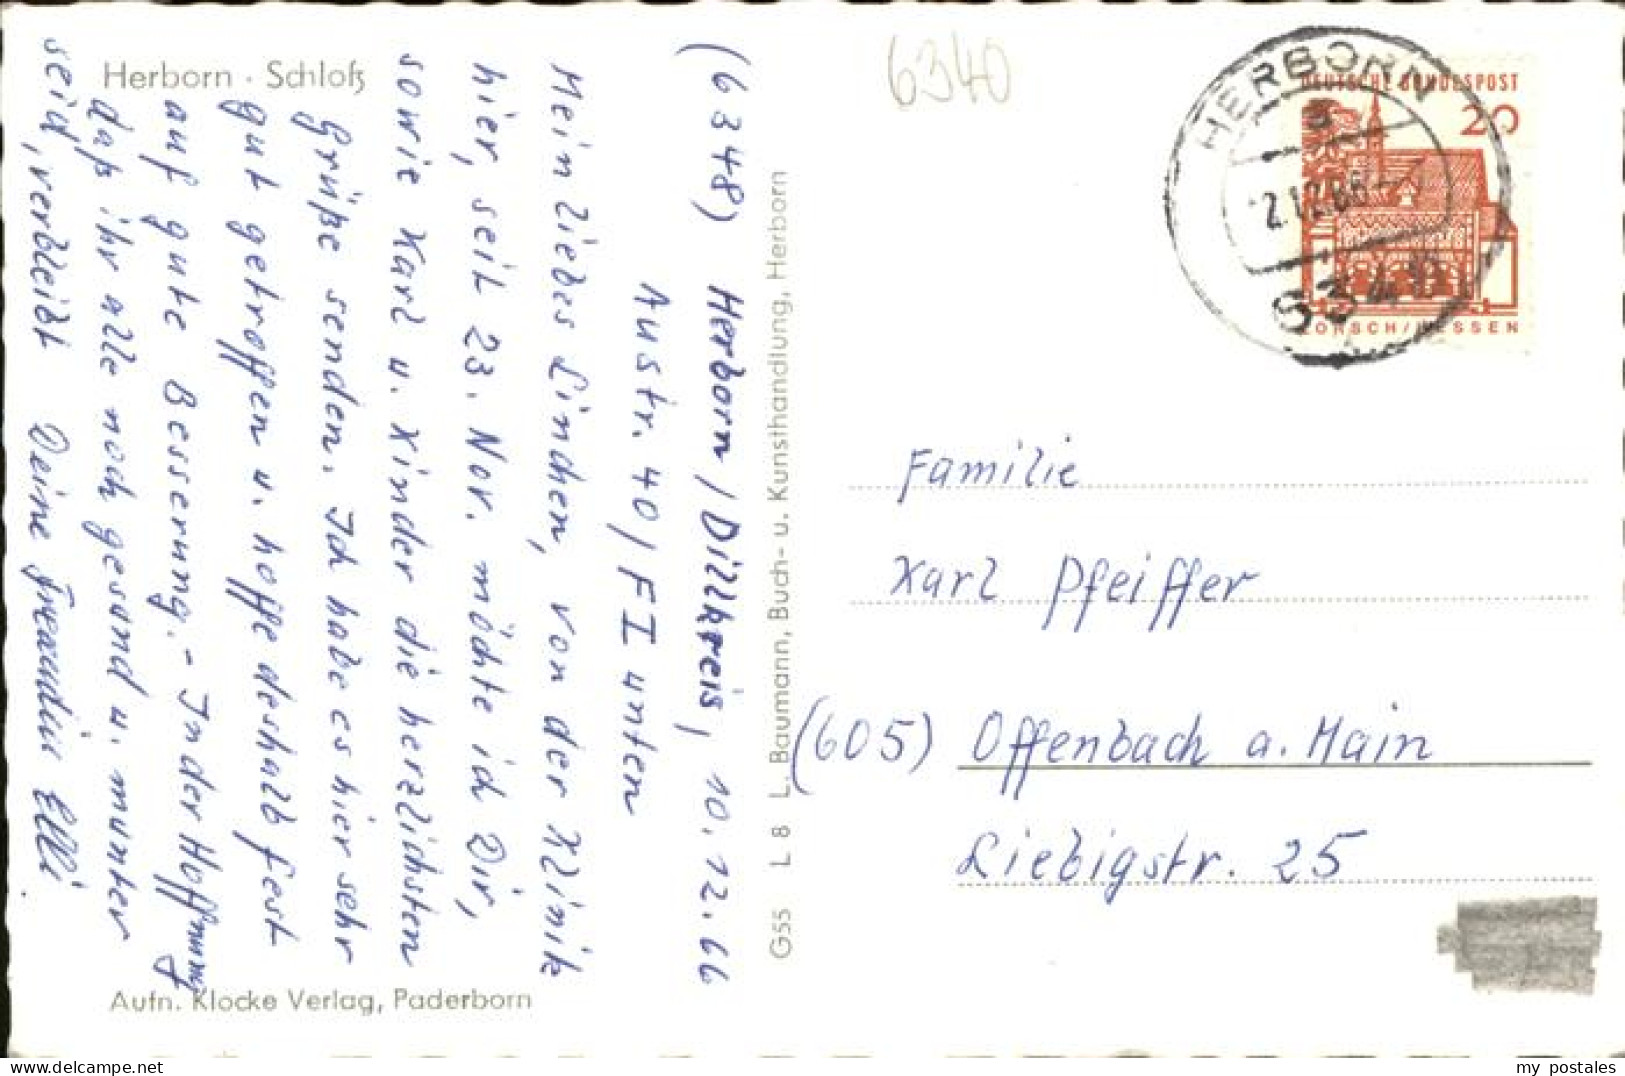 Herborn · Schloß
(6348) Herborn / Dillkreis, 10.12.66
Austr. 40 / F I unten
Mein liebes Linchen, von der Klinik
hier, seit 23. Nov. möchte ich Dir,
sowie Karl u. Kinder die herzlichsten
Grüße senden. Ich habe es hier sehr
gut getroffen u. hoffe deshalb fest
auf gute Besserung. - In der Hoffnung
daß ihr alle noch gesund u. munter
seid, verbleibt Deine Freundin Elli.
Aufn. Klocke Verlag, Paderborn
G55 L 8 L. Baumann, Buch- u. Kunsthandlung, Herborn
6340
HERBORN
a
2.12.66
634
DEUTSCHE BUNDESPOST
20
LORSCH/HESSEN
Familie
Karl Pfeiffer
(605) Offenbach a. Main
Liebigstr. 25
my postales